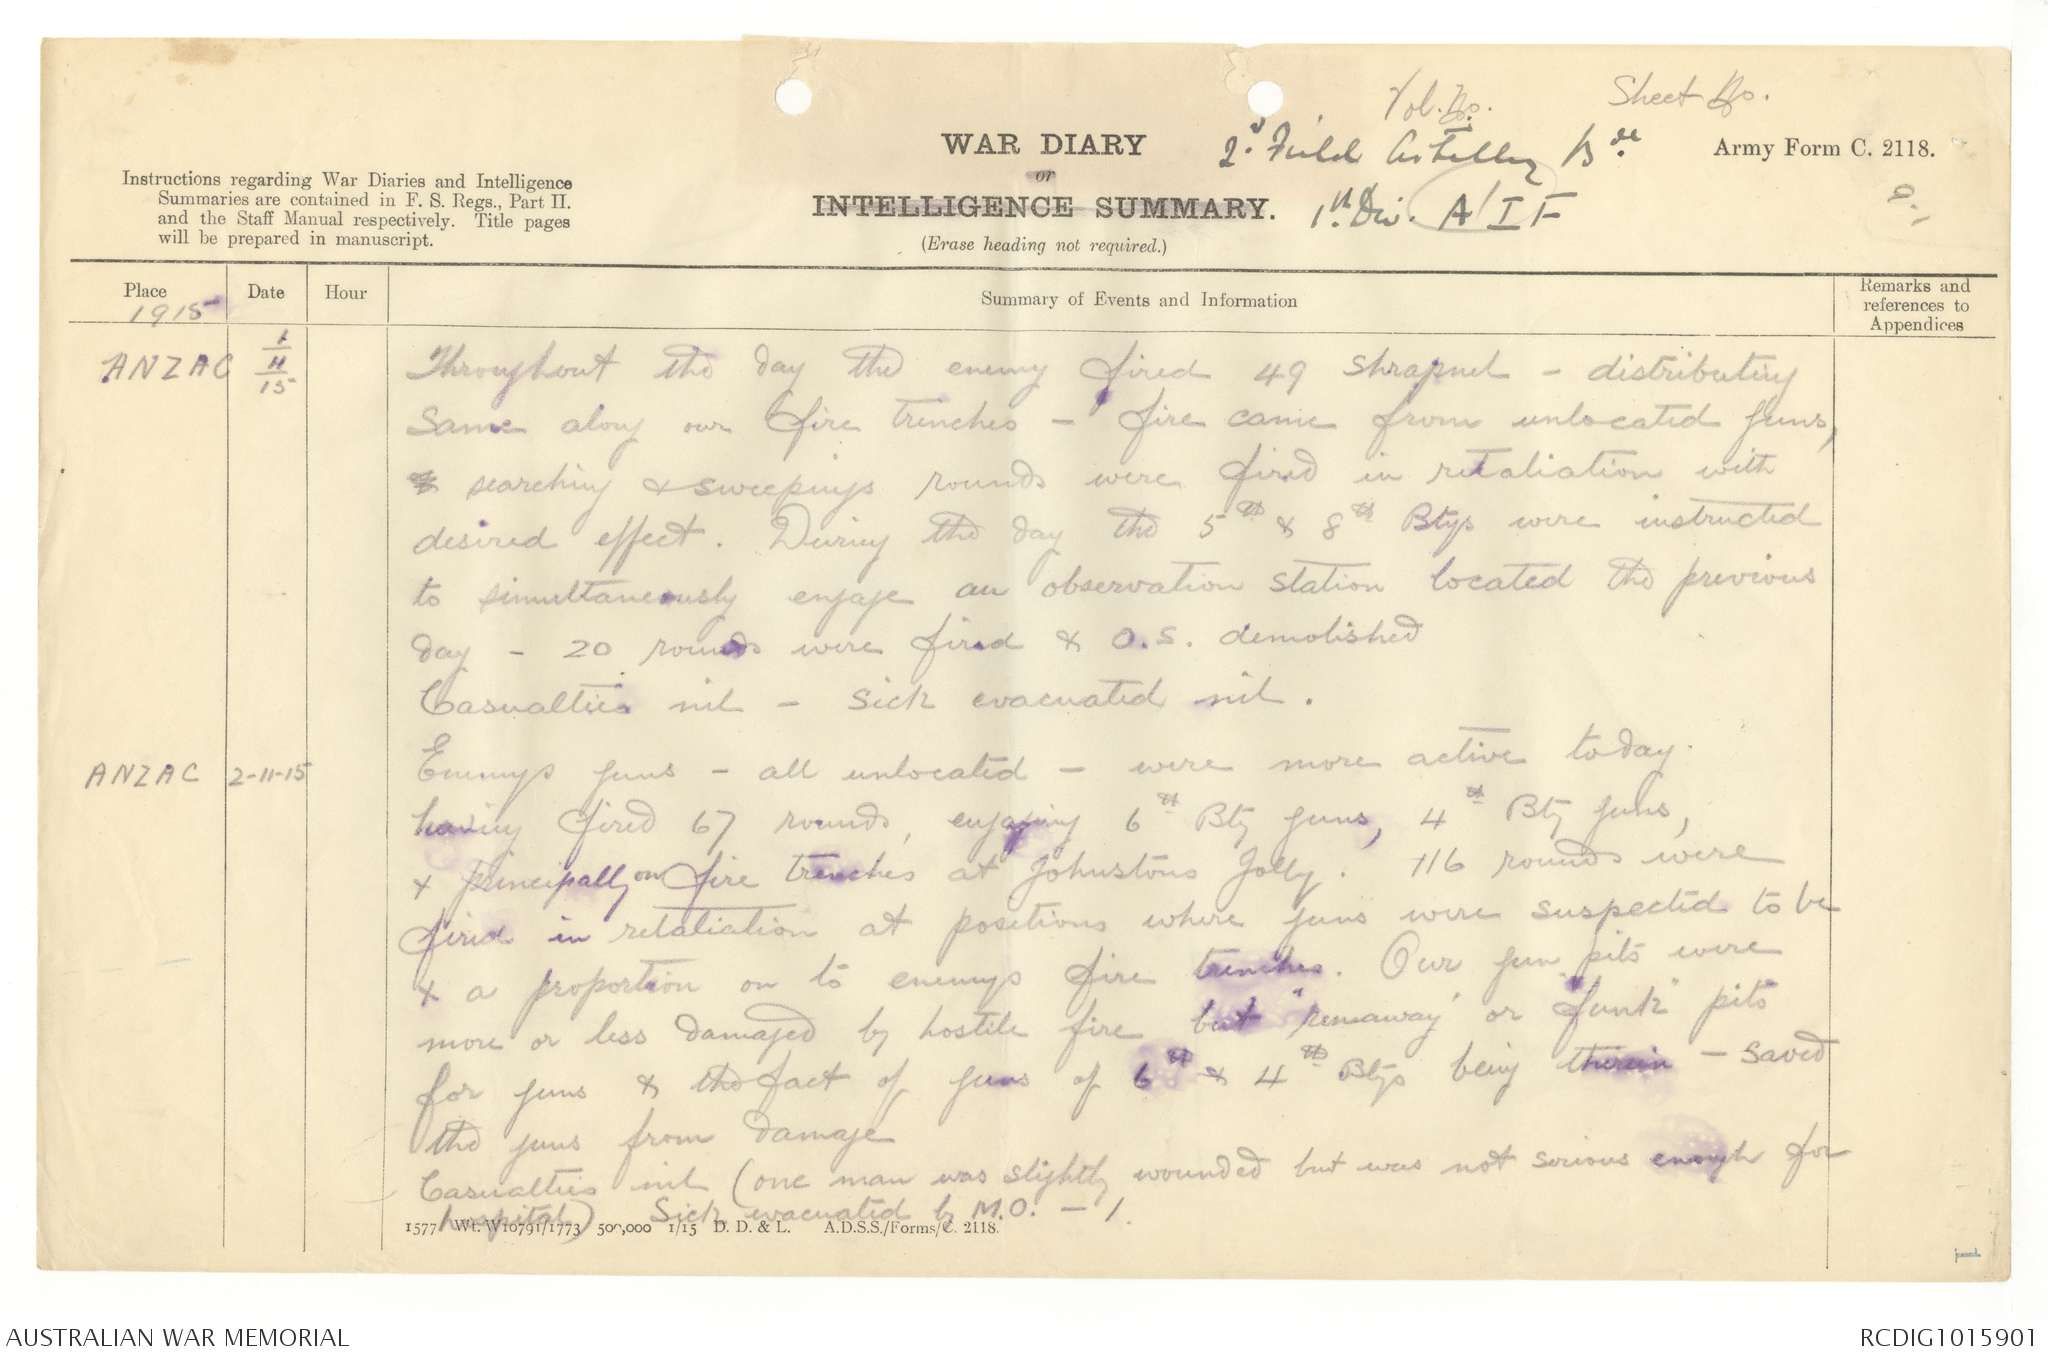 Vol. No. Sheet No.
WAR DIARY
or
INTELLIGENCE SUMMARY.
(Erase heading not required.)
2d. Field Artillery Bde.
1st. Div. A I F
Army Form C. 2118.
Instructions regarding War Diaries and Intelligence
Summaries are contained in F. S. Regs., Part II.
and the Staff Manual respectively. Title pages
will be prepared in manuscript.
Place Date Hour Summary of Events and Information Remarks and references to Appendices
1915
ANZAC 1/11/15 Throughout the day the enemy fired 49 shrapnel - distributing
same along our fire trenches - fire came from unlocated guns,
searching & sweeping rounds were fired in retaliation with
desired effect. During the day the 5th & 8th Btys were instructed
to simultaneously engage an observation station located the previous
day - 20 rounds were fired & O.S. demolished
Casualties nil - Sick evacuated nil.
ANZAC 2-11-15 Enemys guns - all unlocated - were more active today.
having fired 67 rounds, engaging 6th Bty guns, 4th Bty guns,
& principally on fire trenches at Johnstons Jolly. 116 rounds were
fired in retaliation at positions where guns were suspected to be
& a proportion on to enemys fire trenches. Our gun pits were
more or less damaged by hostile fire but "runaway" or "funk" pits
for guns & the fact of guns of 6th & 4th Btys being therein - saved
the guns from damage
Casualties nil (one man was slightly wounded but was not serious enough for
hospital) Sick evacuated by M.O. - 1.
1577 Wt. W10791/1773 500,000 1/15 D. D. & L. A.D.S.S./Forms/C. 2118.
AUSTRALIAN WAR MEMORIAL RCDIG1015901